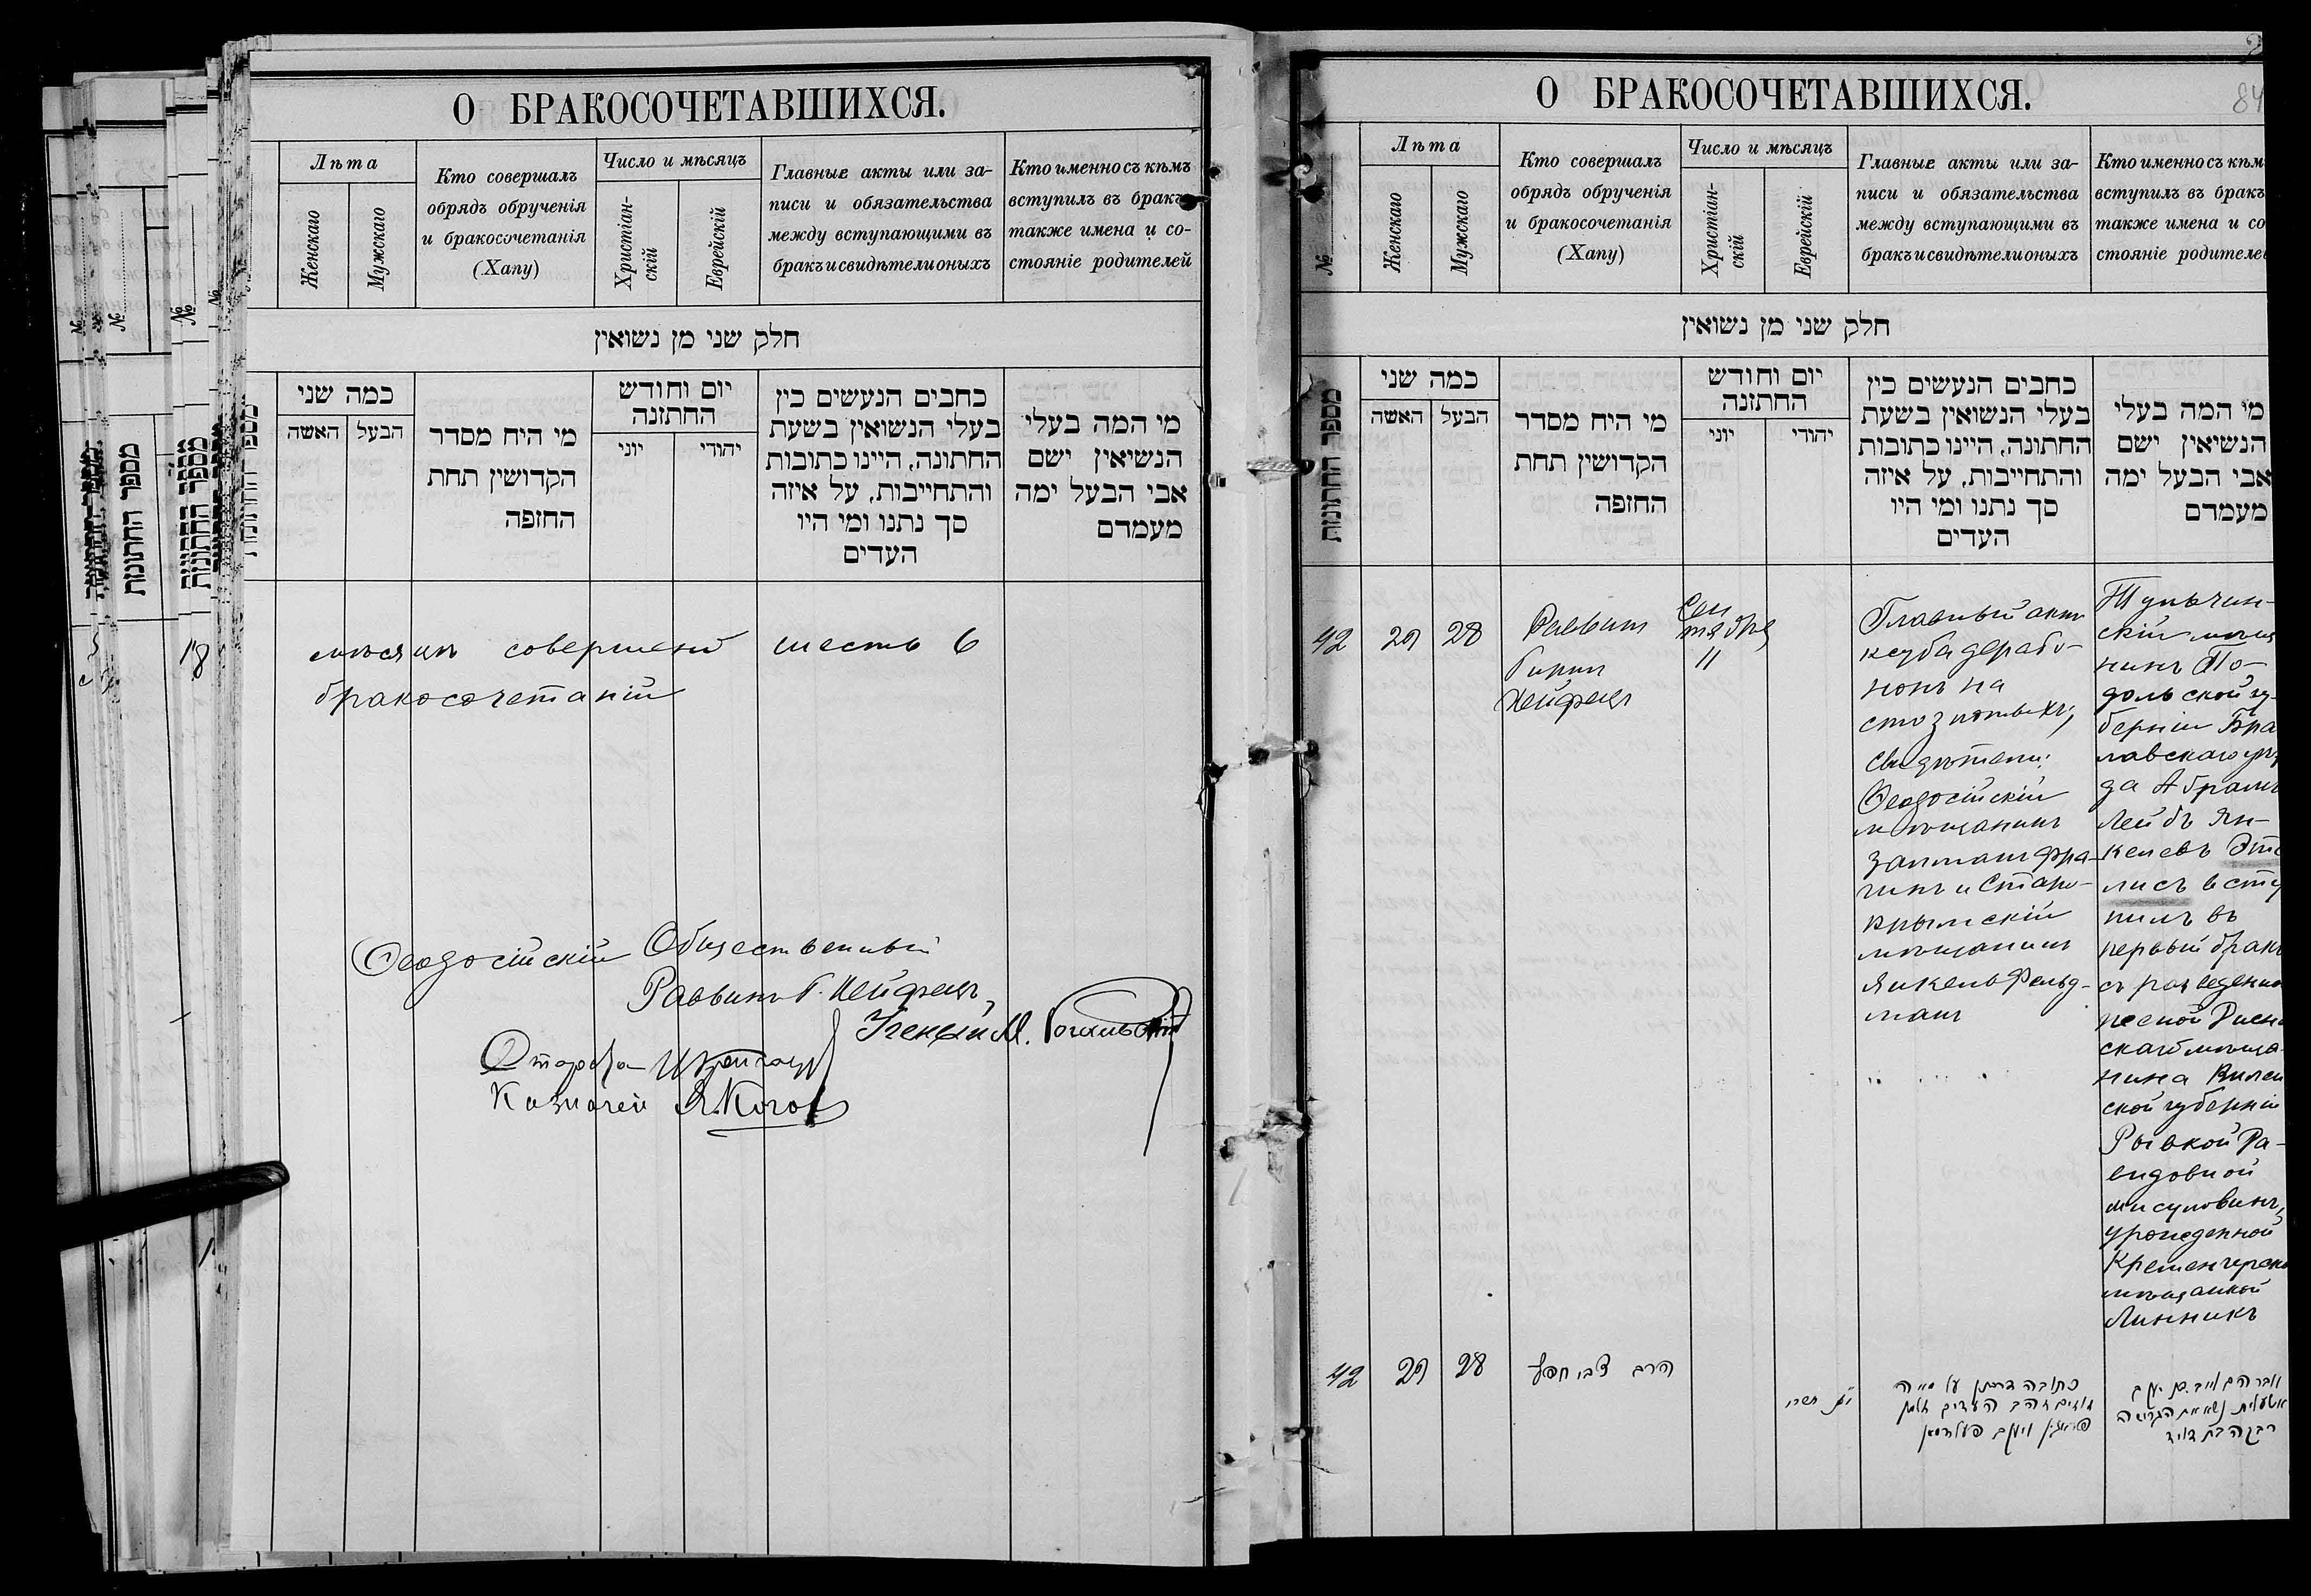 О БРАКОСОЧЕТАВШИХСЯ.
Лѣта
Женскаго
Мужскаго
Кто совершалъ
обрядъ обрученія
и бракосочетанія
(Хапу)
Число и мѣсяцъ
Христіан-
скій
Еврейскій
Главные акты или за-
писи и обязательства
между вступающими въ
бракъ и свидѣтели оныхъ
Кто именно съ кѣмъ
вступилъ въ бракъ
также имена и со-
стояніе родителей
חלק שני מן נשואין
כמה שני
האשה
הבעל
מי היח מסדר
הקדושין תחת
החופה
יום וחודש
החתזנה
יוני
יהודי
כחבים הנעשים כין
בעלי הנשואין בשעת
החתונה, היינו כתובות
והתחייבות, על איזה
סך נתנו ומי היו
העדים
מי המה בעלי
הנשיאין ישם
אבי הבעל ימה
מעמדם
мѣсяцѣ совершено шесть 6
бракосочетаній
Ѳеодосійскій Общественный
Раввинъ Г. Хейфецъ
Ученый М.
Староста
Казначей Я. Коган
О БРАКОСОЧЕТАВШИХСЯ.
84
№
Лѣта
Женскаго
Мужскаго
Кто совершалъ
обрядъ обрученія
и бракосочетанія
(Хапу)
Число и мѣсяцъ
Христіан-
скій
Еврейскій
Главные акты или за-
писи и обязательства
между вступающими въ
бракъ и свидѣтели оныхъ
Кто именно съ кѣм
вступилъ въ бракъ
также имена и со
стояніе родителе
חלק שני מן נשואין
מספר החתונות
כמה שני
האשה
הבעל
מי היח מסדר
הקדושין תחת
החזפה
יום וחודש
החתזנה
יוני
יהודי
כחבים הנעשים כין
בעלי הנשואין בשעת
החתונה, היינו כתובות
והתחייבות, על איזה
סך נתנו ומי היו
העדים
מי המה בעלי
הנשיאין ישם
אבי הבעל ימה
מעמדם
42
29
28
Раввинъ
Гирш
Хейфецъ
Сен
тября
11
Главный актъ
кетуба дерабо-
нонъ на
сто з
свидѣтели:
Ѳеодосійскій
мѣщанинъ
Залманъ Фра-
чинъ и Старо-
крымскій
мѣщанинъ
Янкель Фельд-
манъ
Тульчин-
скій мѣща
нинъ По-
дольской гу-
берніи Бра
лавскаго уѣз
да Абрамъ
Лейбъ Ян-
келевъ Эте
лисъ всту
пилъ въ
первый бракъ
съ разведенно
женой
скаго мѣща-
нина Вилен
ской губерніи
Рывкой Да-
видовной
урожденной
Кременчугско
мѣщанкой
Линникъ
42
29
28
הרב צבי חפץ
תשרי
כתובה דרבנן על מאה
זהב העדים זלמן
ויעקב פעלדמאן
אברהם לייב בן יעקב
נשא את הגרושה
רבקה בת דוד